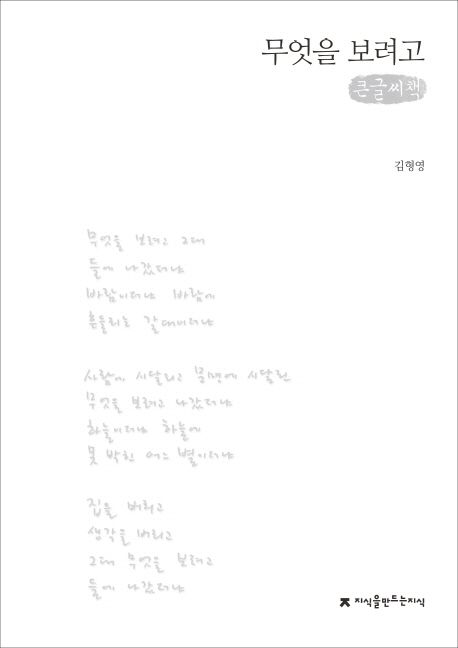 무엇을 보려고
큰글씨책
김형영
무엇을 보려고 그대
들에 나갔더냐
바람이더냐 바람에
흔들리는 갈대이더냐
사람에 시달리고 문명에 시달린
무엇을 보려고 나갔더냐
하늘이더냐 하늘에
못 박힌 어느 별이더냐
집을 버리고
생각을 버리고
그대 무엇을 보려고
들에 나갔더냐
지식을만드는지식